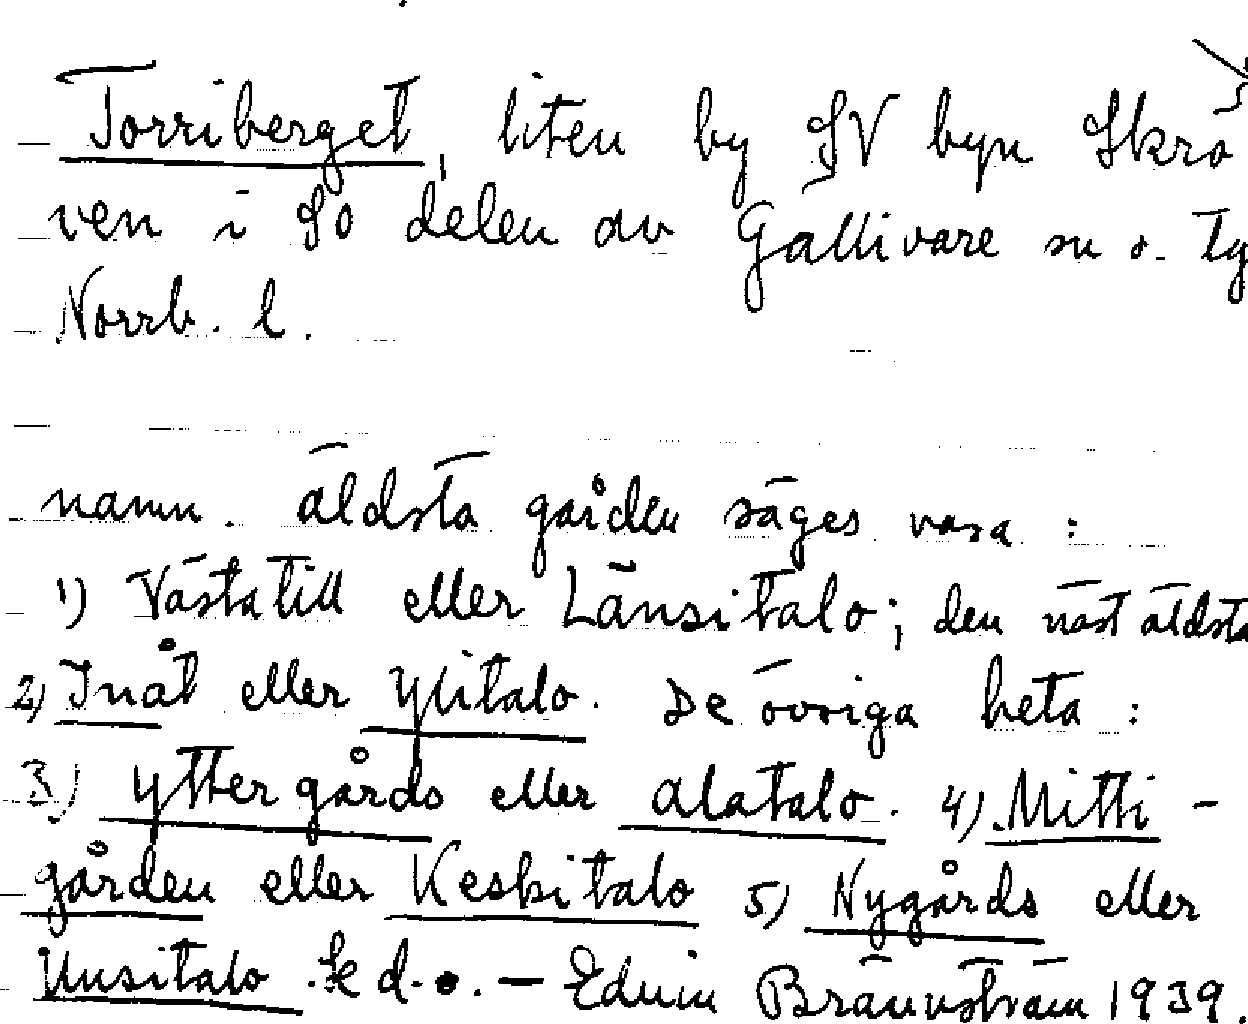 Torriberget, liten by SV byn Skrö
ven i SO delen av Gällivare sn o. tg
Norrb. l.
namn. äldsta gården säges vara :
1) Västatill eller Länsitalo; den näst äldsta
2) Inåt eller Ylitalo. De övriga heta :
3) yttergårds eller alatalo. 4) Mitti -
gården eller Keskitalo 5) Nygårds eller
Uusitalo. Se d.o. — Edvin Brännström 1939.